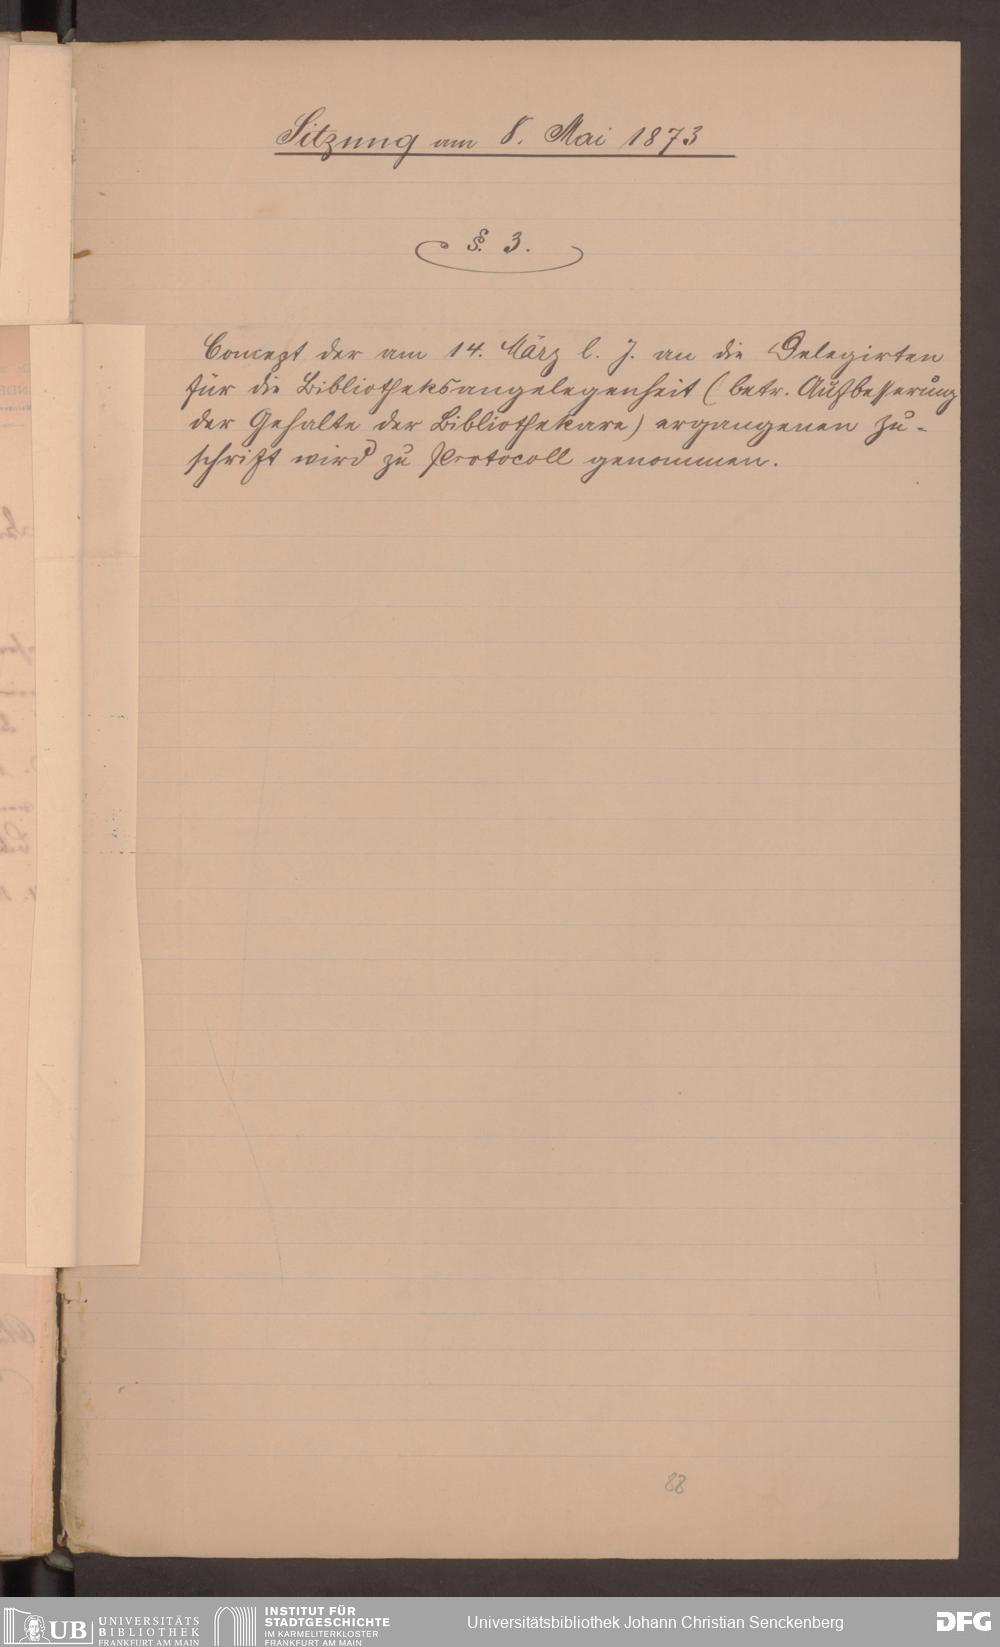 Sitzung am 8. Mai 1873
§. 3.
Concept der am 14. März l. J. an die Delegirten
für die Bibliotheksangelegenheit (betr. Aufbesserung
der Gehalte der Bibliothekare) ergangenen Zu-
schrift wird zu Protocoll genommen.
88
UB UNIVERSITÄTS
BIBLIOTHEK
FRANKFURT AM MAIN
INSTITUT FÜR
STADTGESCHICHTE
IM KARMELITERKLOSTER
FRANKFURT AM MAIN
Universitätsbibliothek Johann Christian Senckenberg
DFG